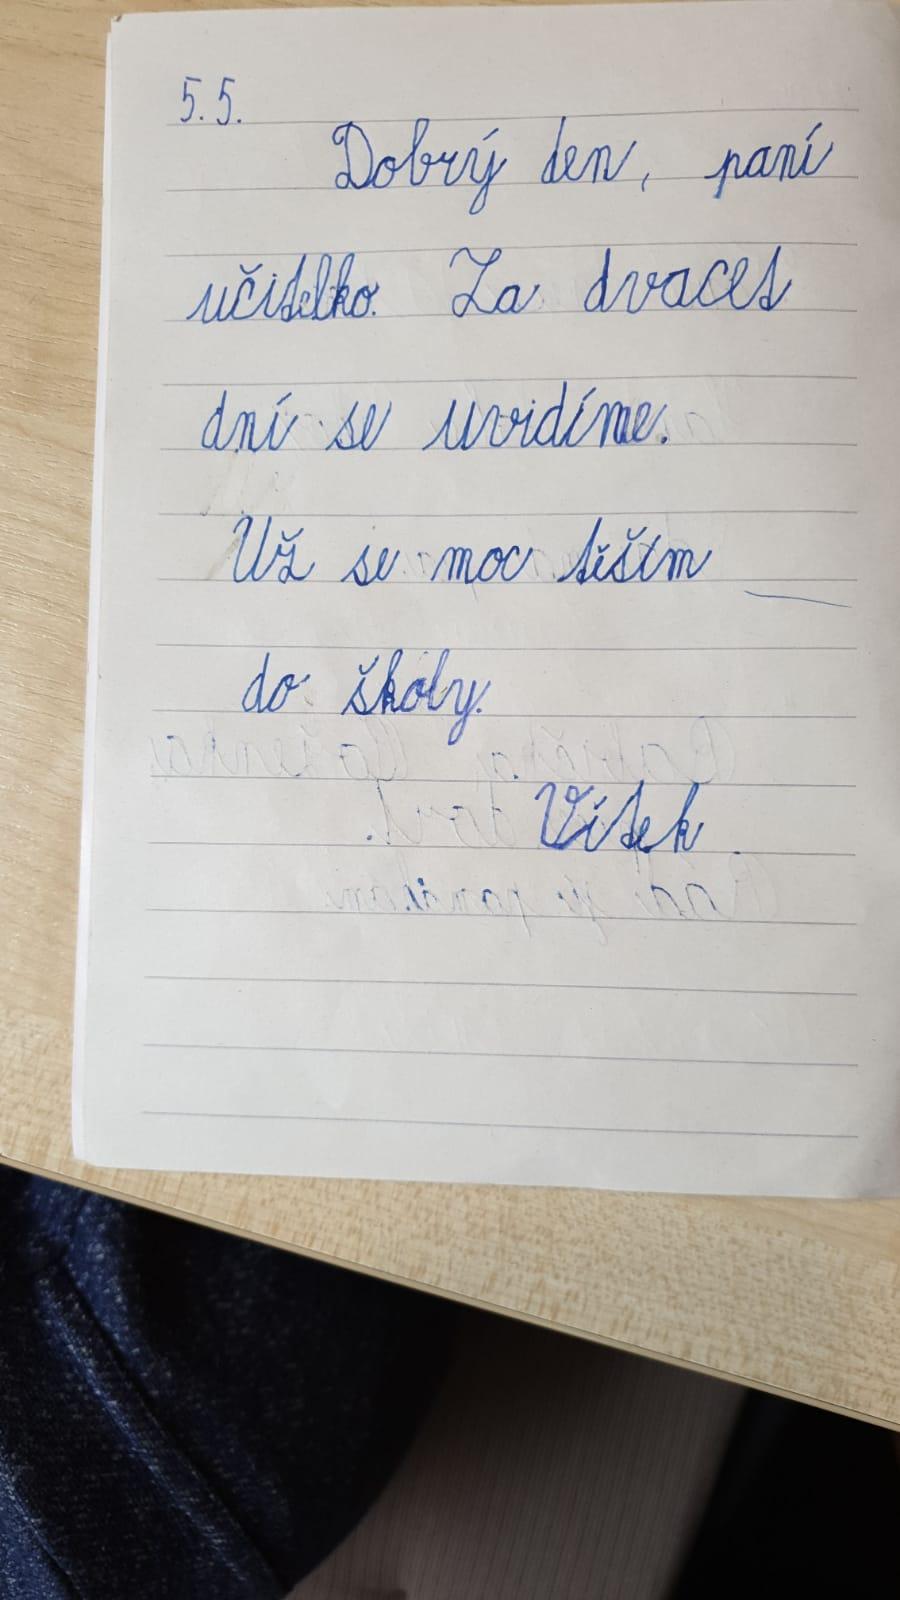 5.5.
Dobrý den, paní
učitelko. Za dvacet
dní se uvidíme.
Už se moc těším
do školy.
Vítek